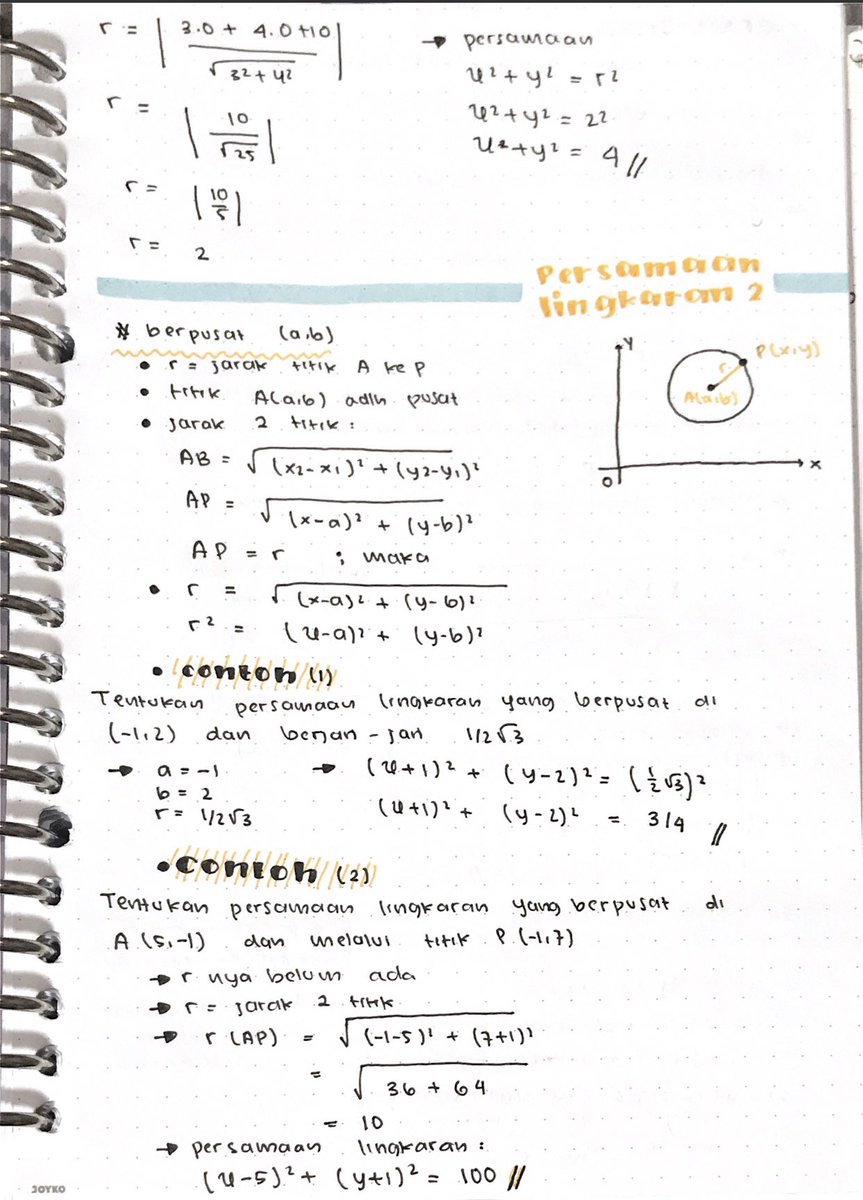 r = | 3.0 + 4.0 +10 / √3²+4² |
r = | 10 / √25 |
r = | 10/5 |
r = 2
→ persamaan
x² + y² = r²
x² + y² = 2²
x² + y² = 4 //
Persamaan
lingkaran 2
* berpusat (a,b)
• r = jarak titik A ke P
• titik A(a,b) adlh pusat
• jarak 2 titik :
AB = √(x₂-x₁)² + (y₂-y₁)²
AP = √(x-a)² + (y-b)²
AP = r ; maka
• r = √(x-a)² + (y-b)²
r² = (x-a)² + (y-b)²
Y
P(x,y)
r
A(a,b)
O
X
• contoh (1)
Tentukan persamaan lingkaran yang berpusat di
(-1,2) dan berjari-jari 1/2√3
→ a = -1
b = 2
r = 1/2√3
→ (x+1)² + (y-2)² = (½√3)²
(x+1)² + (y-2)² = 3/4 //
• contoh (2)
Tentukan persamaan lingkaran yang berpusat di
A (5,-1) dan melalui titik P (-1,7)
→ r nya belum ada
→ r = jarak 2 titik
→ r (AP) = √(-1-5)² + (7+1)²
= √36 + 64
= 10
→ persamaan lingkaran :
(x-5)² + (y+1)² = 100 //
JOYKO